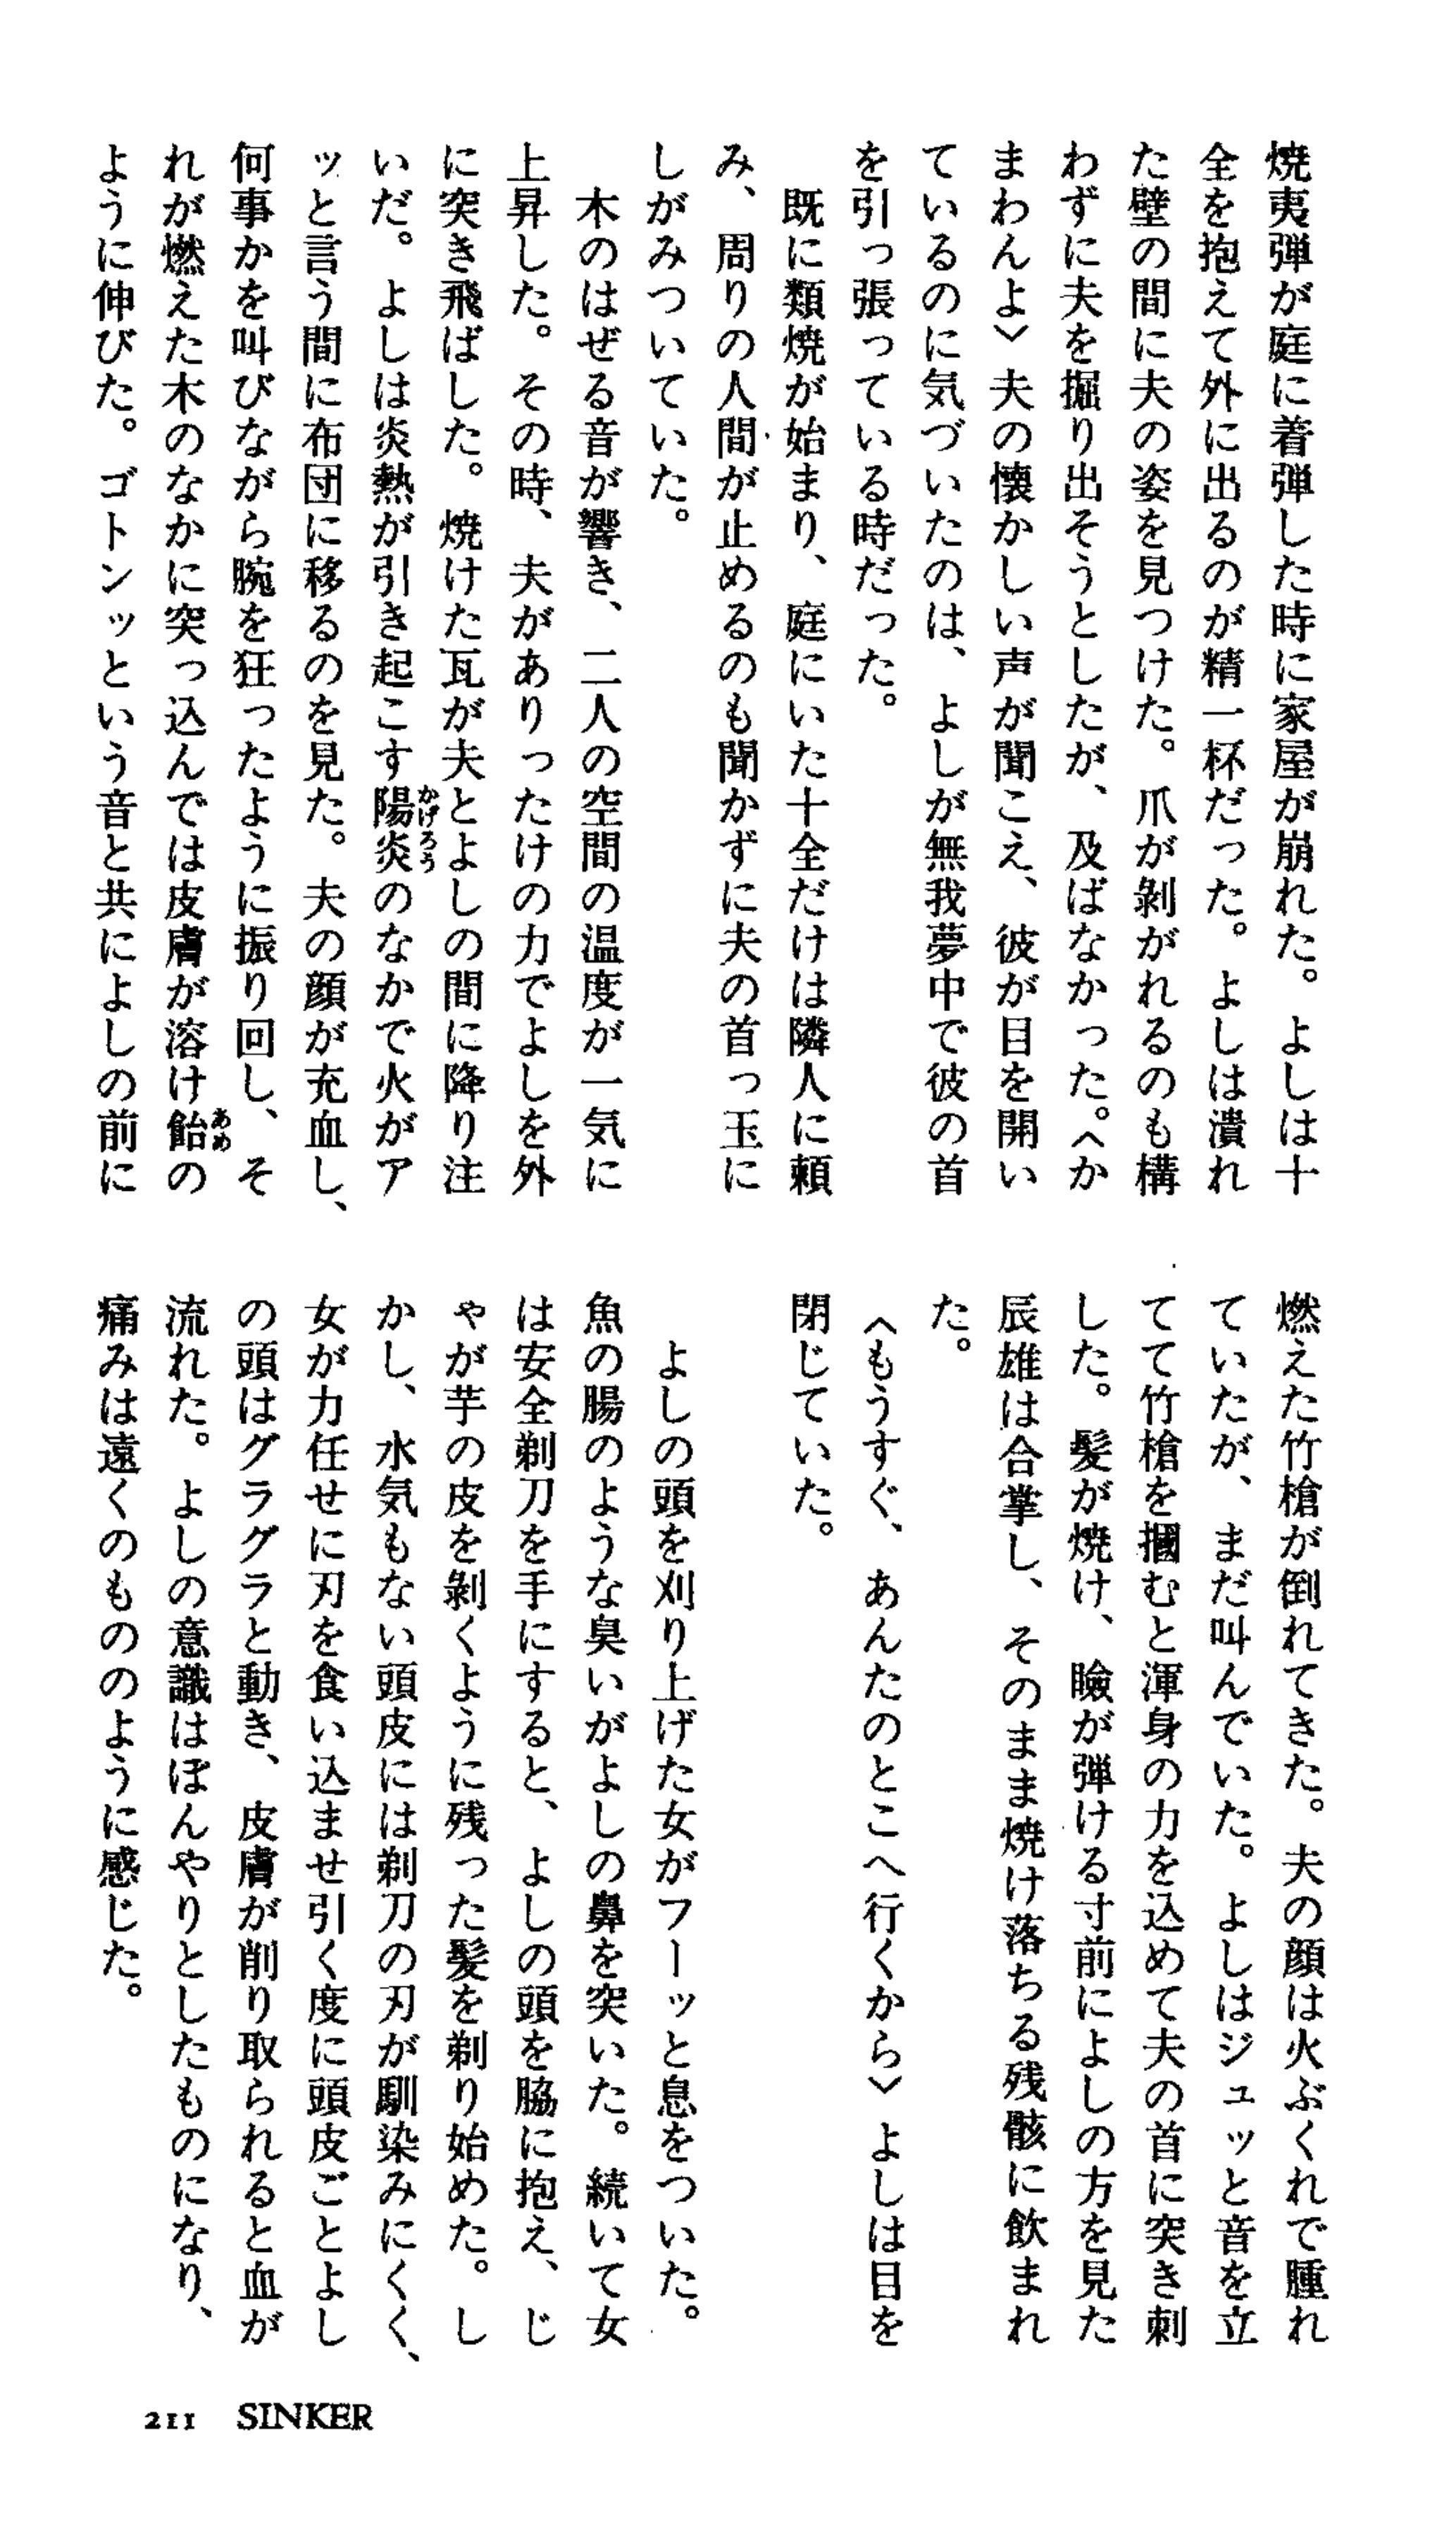 焼夷弾が庭に着弾した時に家屋が崩れた。よしは十
全を抱えて外に出るのが精一杯だった。よしは潰れ
た壁の間に夫の姿を見つけた。爪が剝がれるのも構
わずに夫を掘り出そうとしたが、及ばなかった。〈か
まわんよ〉夫の懐かしい声が聞こえ、彼が目を開い
ているのに気づいたのは、よしが無我夢中で彼の首
を引っ張っている時だった。
　既に類焼が始まり、庭にいた十全だけは隣人に頼
み、周りの人間が止めるのも聞かずに夫の首っ玉に
しがみついていた。
　木のはぜる音が響き、二人の空間の温度が一気に
上昇した。その時、夫がありったけの力でよしを外
に突き飛ばした。焼けた瓦が夫とよしの間に降り注
いだ。よしは炎熱が引き起こす陽炎かげろうのなかで火がア
ッと言う間に布団に移るのを見た。夫の顔が充血し、
何事かを叫びながら腕を狂ったように振り回し、そ
れが燃えた木のなかに突っ込んでは皮膚が溶け飴あめの
ように伸びた。ゴトンッという音と共によしの前に
燃えた竹槍が倒れてきた。夫の顔は火ぶくれで腫れ
ていたが、まだ叫んでいた。よしはジュッと音を立
てて竹槍を摑むと渾身の力を込めて夫の首に突き刺
した。髪が焼け、瞼が弾ける寸前によしの方を見た
辰雄は合掌し、そのまま焼け落ちる残骸に飲まれ
た。
〈もうすぐ、あんたのとこへ行くから〉よしは目を
閉じていた。
　よしの頭を刈り上げた女がフーッと息をついた。
魚の腸のような臭いがよしの鼻を突いた。続いて女
は安全剃刀を手にすると、よしの頭を脇に抱え、じ
ゃが芋の皮を剝くように残った髪を剃り始めた。し
かし、水気もない頭皮には剃刀の刃が馴染みにくく、
女が力任せに刃を食い込ませ引く度に頭皮ごとよし
の頭はグラグラと動き、皮膚が削り取られると血が
流れた。よしの意識はぼんやりとしたものになり、
痛みは遠くのもののように感じた。
211 SINKER